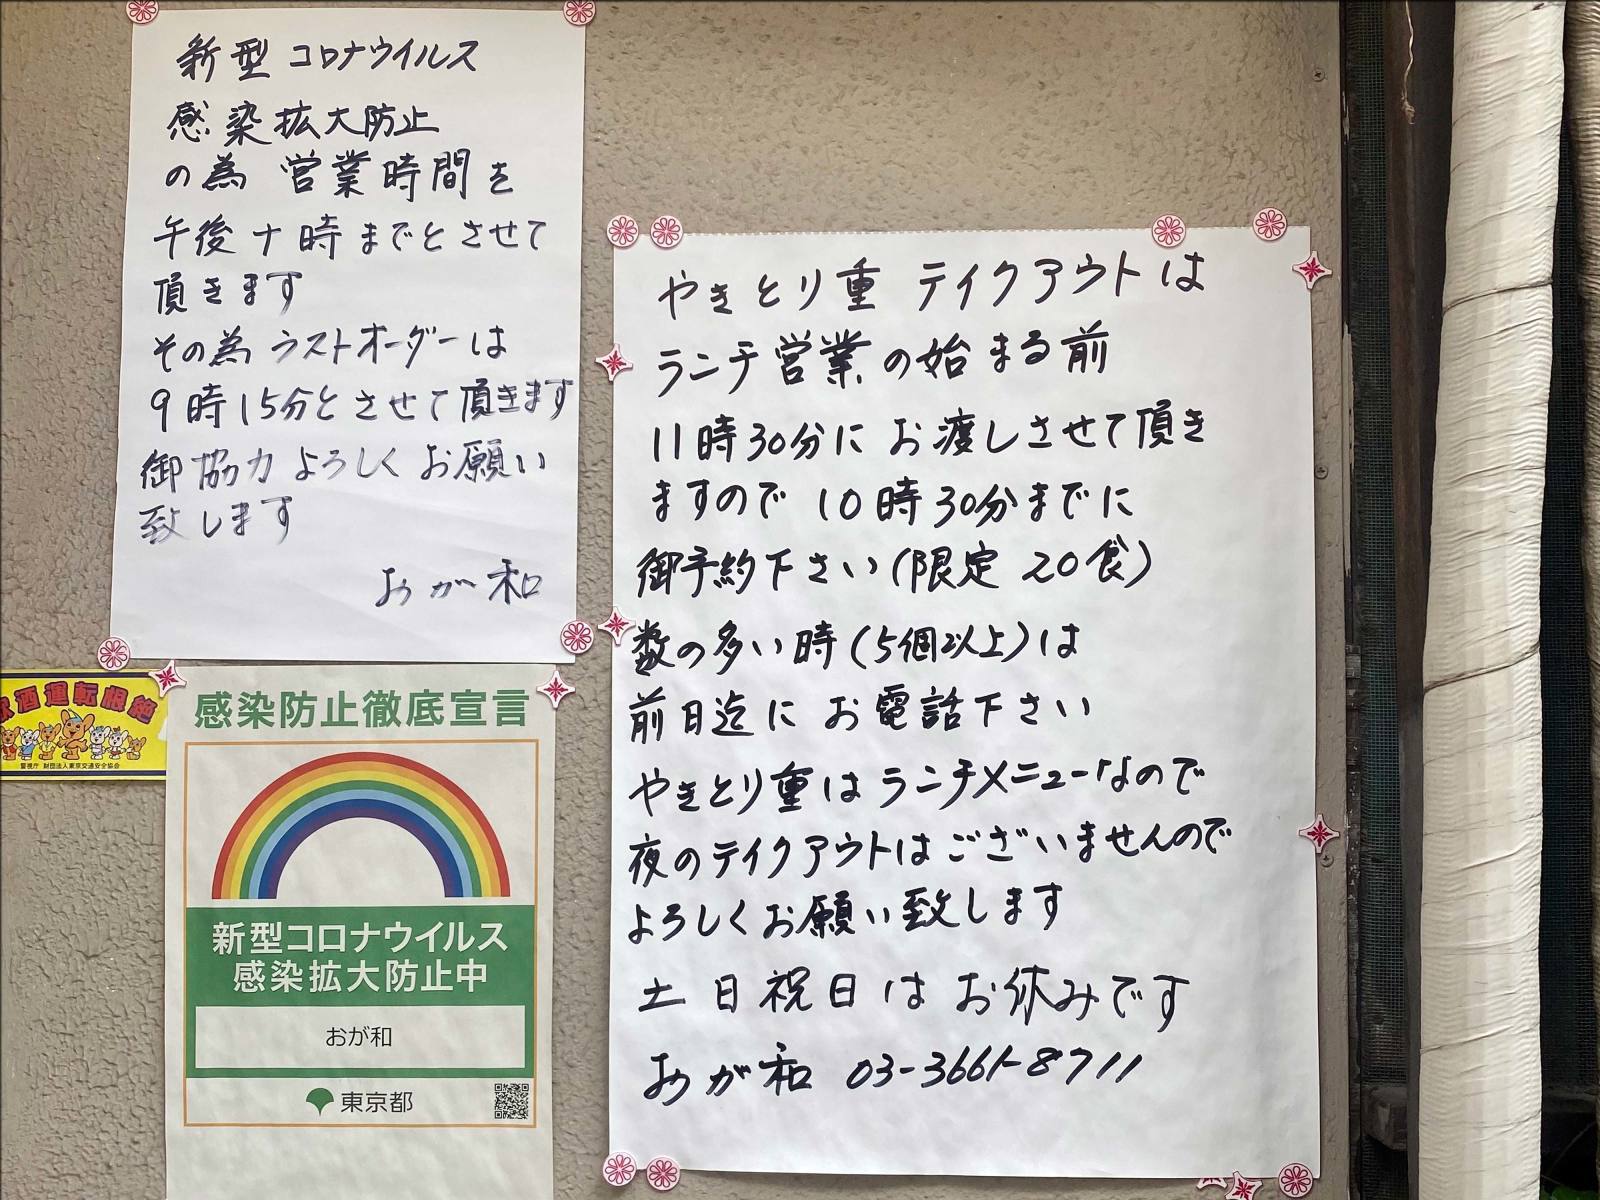 新型コロナウイルス
感染拡大防止
の為 営業時間を
午後十時までとさせて
頂きます
その為ラストオーダーは
9時15分とさせて頂きます
御協力よろしくお願い
致します
おが和
やきとり重 テイクアウトは
ランチ営業の始まる前
11時30分にお渡しさせて頂き
ますので10時30分までに
御予約下さい(限定 20食)
数の多い時(5個以上)は
前日迄にお電話下さい
やきとり重はランチメニューなので
夜のテイクアウトはございませんので
よろしくお願い致します
土日祝日はお休みです
おが和 03-3661-8711
酒運転根絶
警視庁 財団法人東京交通安全協会
感染防止徹底宣言
新型コロナウイルス
感染拡大防止中
おが和
東京都